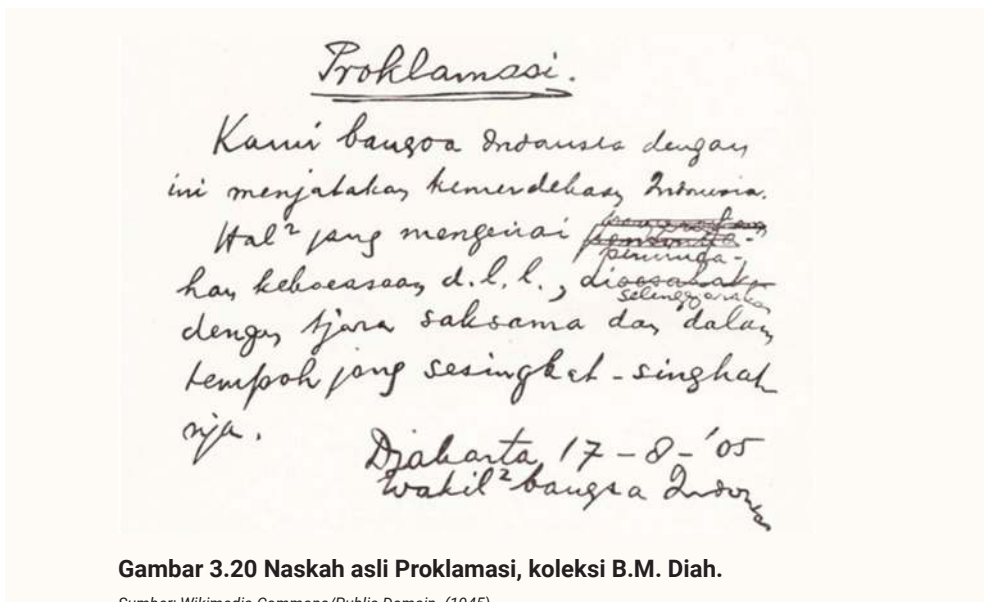 Proklamasi.
Kami bangsa Indonesia dengan
ini menjatakan kemerdekaan Indonesia.
Hal² jang mengenai
peminda-
han kekoeasaan d.l.l.,
selenggarakan
dengan tjara saksama dan dalam
tempoh jang sesingkat-singkat
nja.
Djakarta 17-8-'05
Wakil² bangsa Indonesia
Gambar 3.20 Naskah asli Proklamasi, koleksi B.M. Diah.
Sumber: Wikimedia Commons/Public Domain (1945)